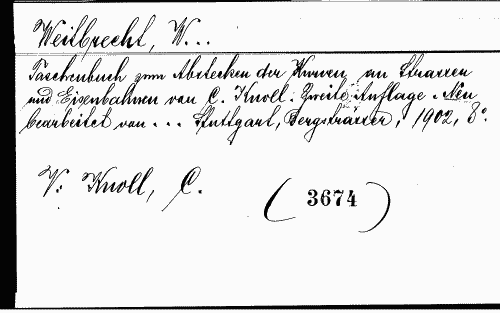 Weitbrecht, W...
Taschenbuch zum Abstecken der Kurven an Strassen
und Eisenbahnen von C. Knoll. Zweite Auflage. Neu
bearbeitet von ... Stuttgart, Bergsträsser, 1902, 8°.
V: Knoll, C.
(3674)